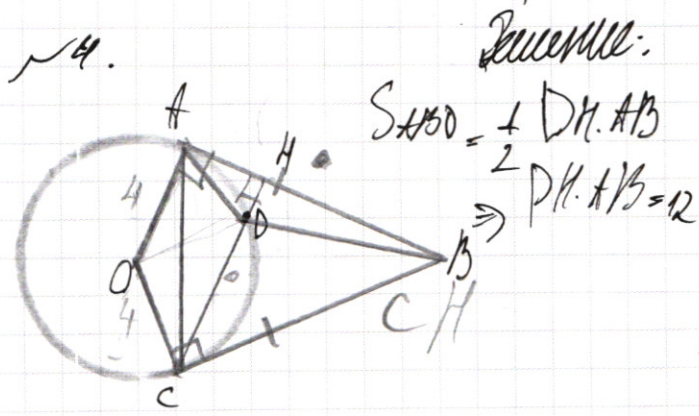 №4.
Решение:
S_{ABD} = \frac{1}{2} DH·AB
⇒ DH·AB=12
A
H
4
4
D
O
B
4
CH
C